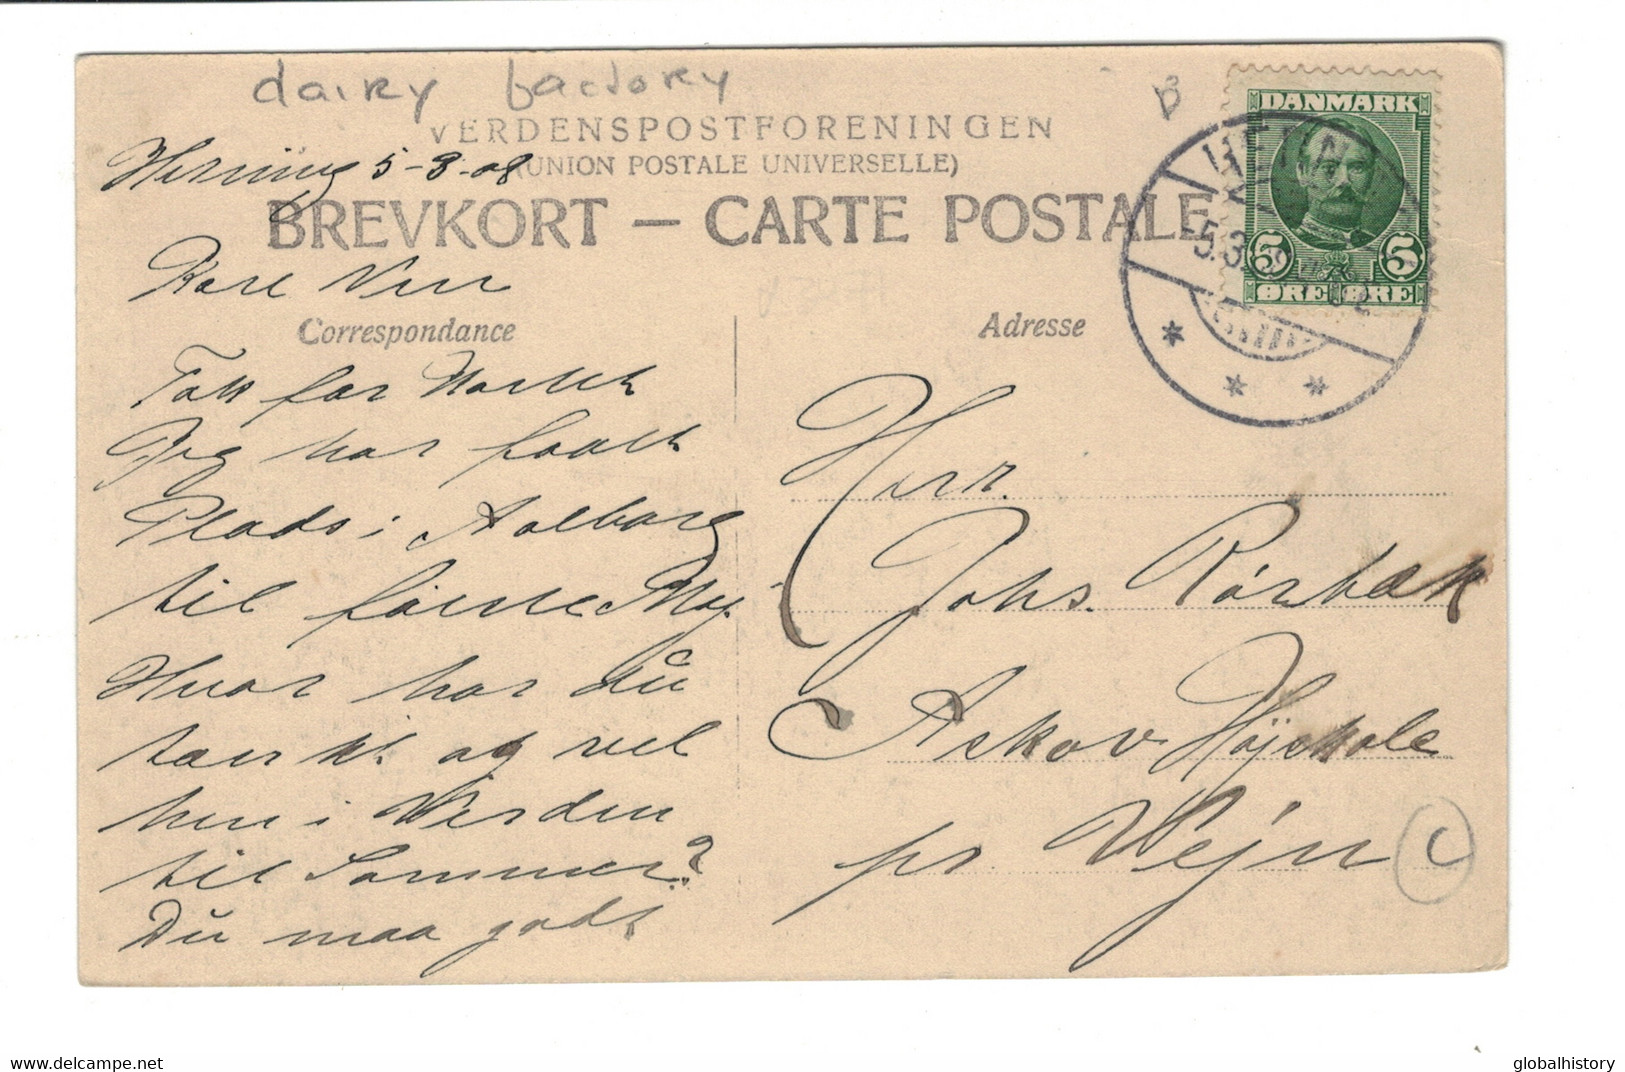 dairy factory
B
VERDENSPOSTFORENINGEN
(UNION POSTALE UNIVERSELLE)
BREVKORT — CARTE POSTALE
Herning 5-3-08
Kære Ven
Correspondance
Tak for Kortet
Jeg har faaet
Plads i Aalborg
til første Maj.
Hvor har du
tænkt og vel
hen i Verden
til Sommer?
Du maa godt
Adresse
Herr.
Johs. Rørbæk
Askov Højskole
pr. Vejen
C
DANMARK
5 5
ØRE ØRE
HERNING
5.3.
globalhistory